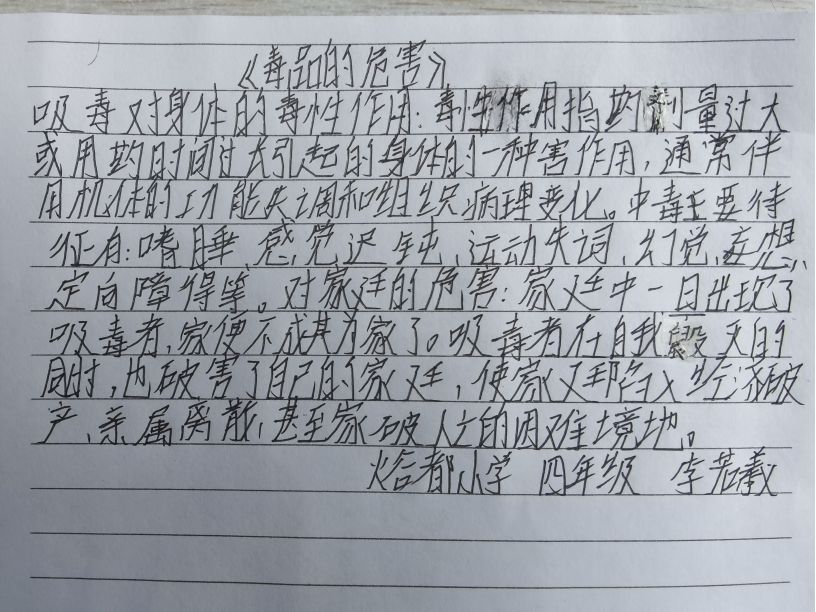 《毒品的危害》
吸毒对身体的毒性作用:毒性作用指药剂量过大
或用药时间过长引起的身体的一种害作用,通常伴
用机体的功能失调和组织病理变化。中毒主要待
征有:嗜睡、感觉迟钝、运动失词、幻觉、妄想、
定向障得等。对家廷的危害:家廷中一旦出现了
吸毒者,家便不成其为家了。吸毒者在自我毁灭的
同时,也破害了自己的家廷,使家廷陷入经济破
产、亲属离散,甚至家破人亡的困难境地。
都小学 四年级 李若羲